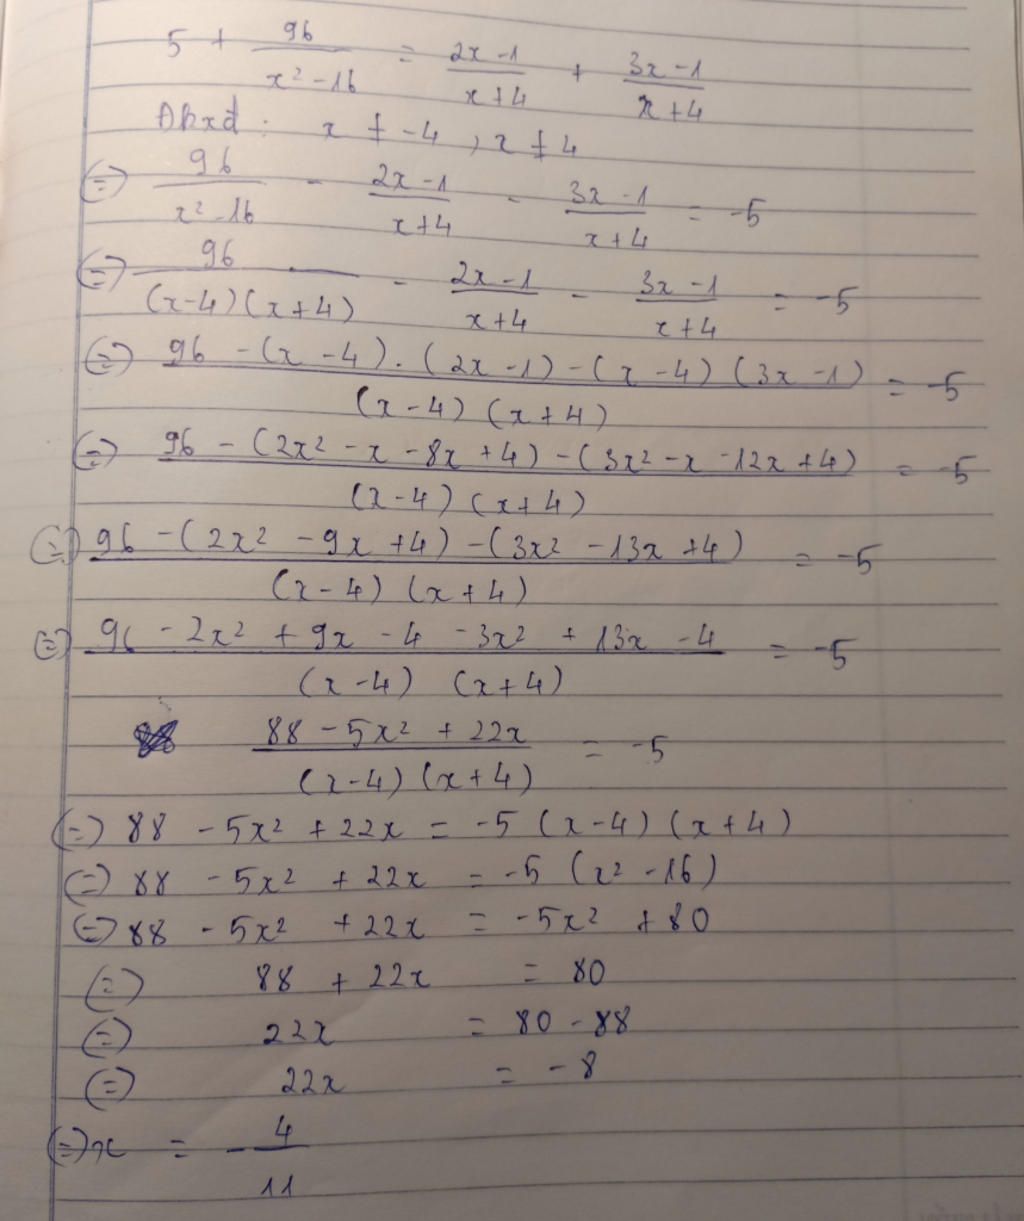 5 + 96/(x² - 16) = (2x - 1)/(x + 4) + (3x - 1)/(x + 4)
Đkxđ : x ≠ -4 , x ≠ 4
(=) 96/(x² - 16) - (2x - 1)/(x + 4) - (3x - 1)/(x + 4) = -5
(=) 96/((x - 4)(x + 4)) - (2x - 1)/(x + 4) - (3x - 1)/(x + 4) = -5
(=) (96 - (x - 4) . (2x - 1) - (x - 4)(3x - 1))/((x - 4)(x + 4)) = -5
(=) (96 - (2x² - x - 8x + 4) - (3x² - x - 12x + 4))/((x - 4)(x + 4)) = -5
(=) (96 - (2x² - 9x + 4) - (3x² - 13x + 4))/((x - 4)(x + 4)) = -5
(=) (96 - 2x² + 9x - 4 - 3x² + 13x - 4)/((x - 4)(x + 4)) = -5
(88 - 5x² + 22x)/((x - 4)(x + 4)) = -5
(=) 88 - 5x² + 22x = -5 (x - 4)(x + 4)
(=) 88 - 5x² + 22x = -5 (x² - 16)
(=) 88 - 5x² + 22x = -5x² + 80
(=) 88 + 22x = 80
(=) 22x = 80 - 88
(=) 22x = -8
(=) x = -4/11